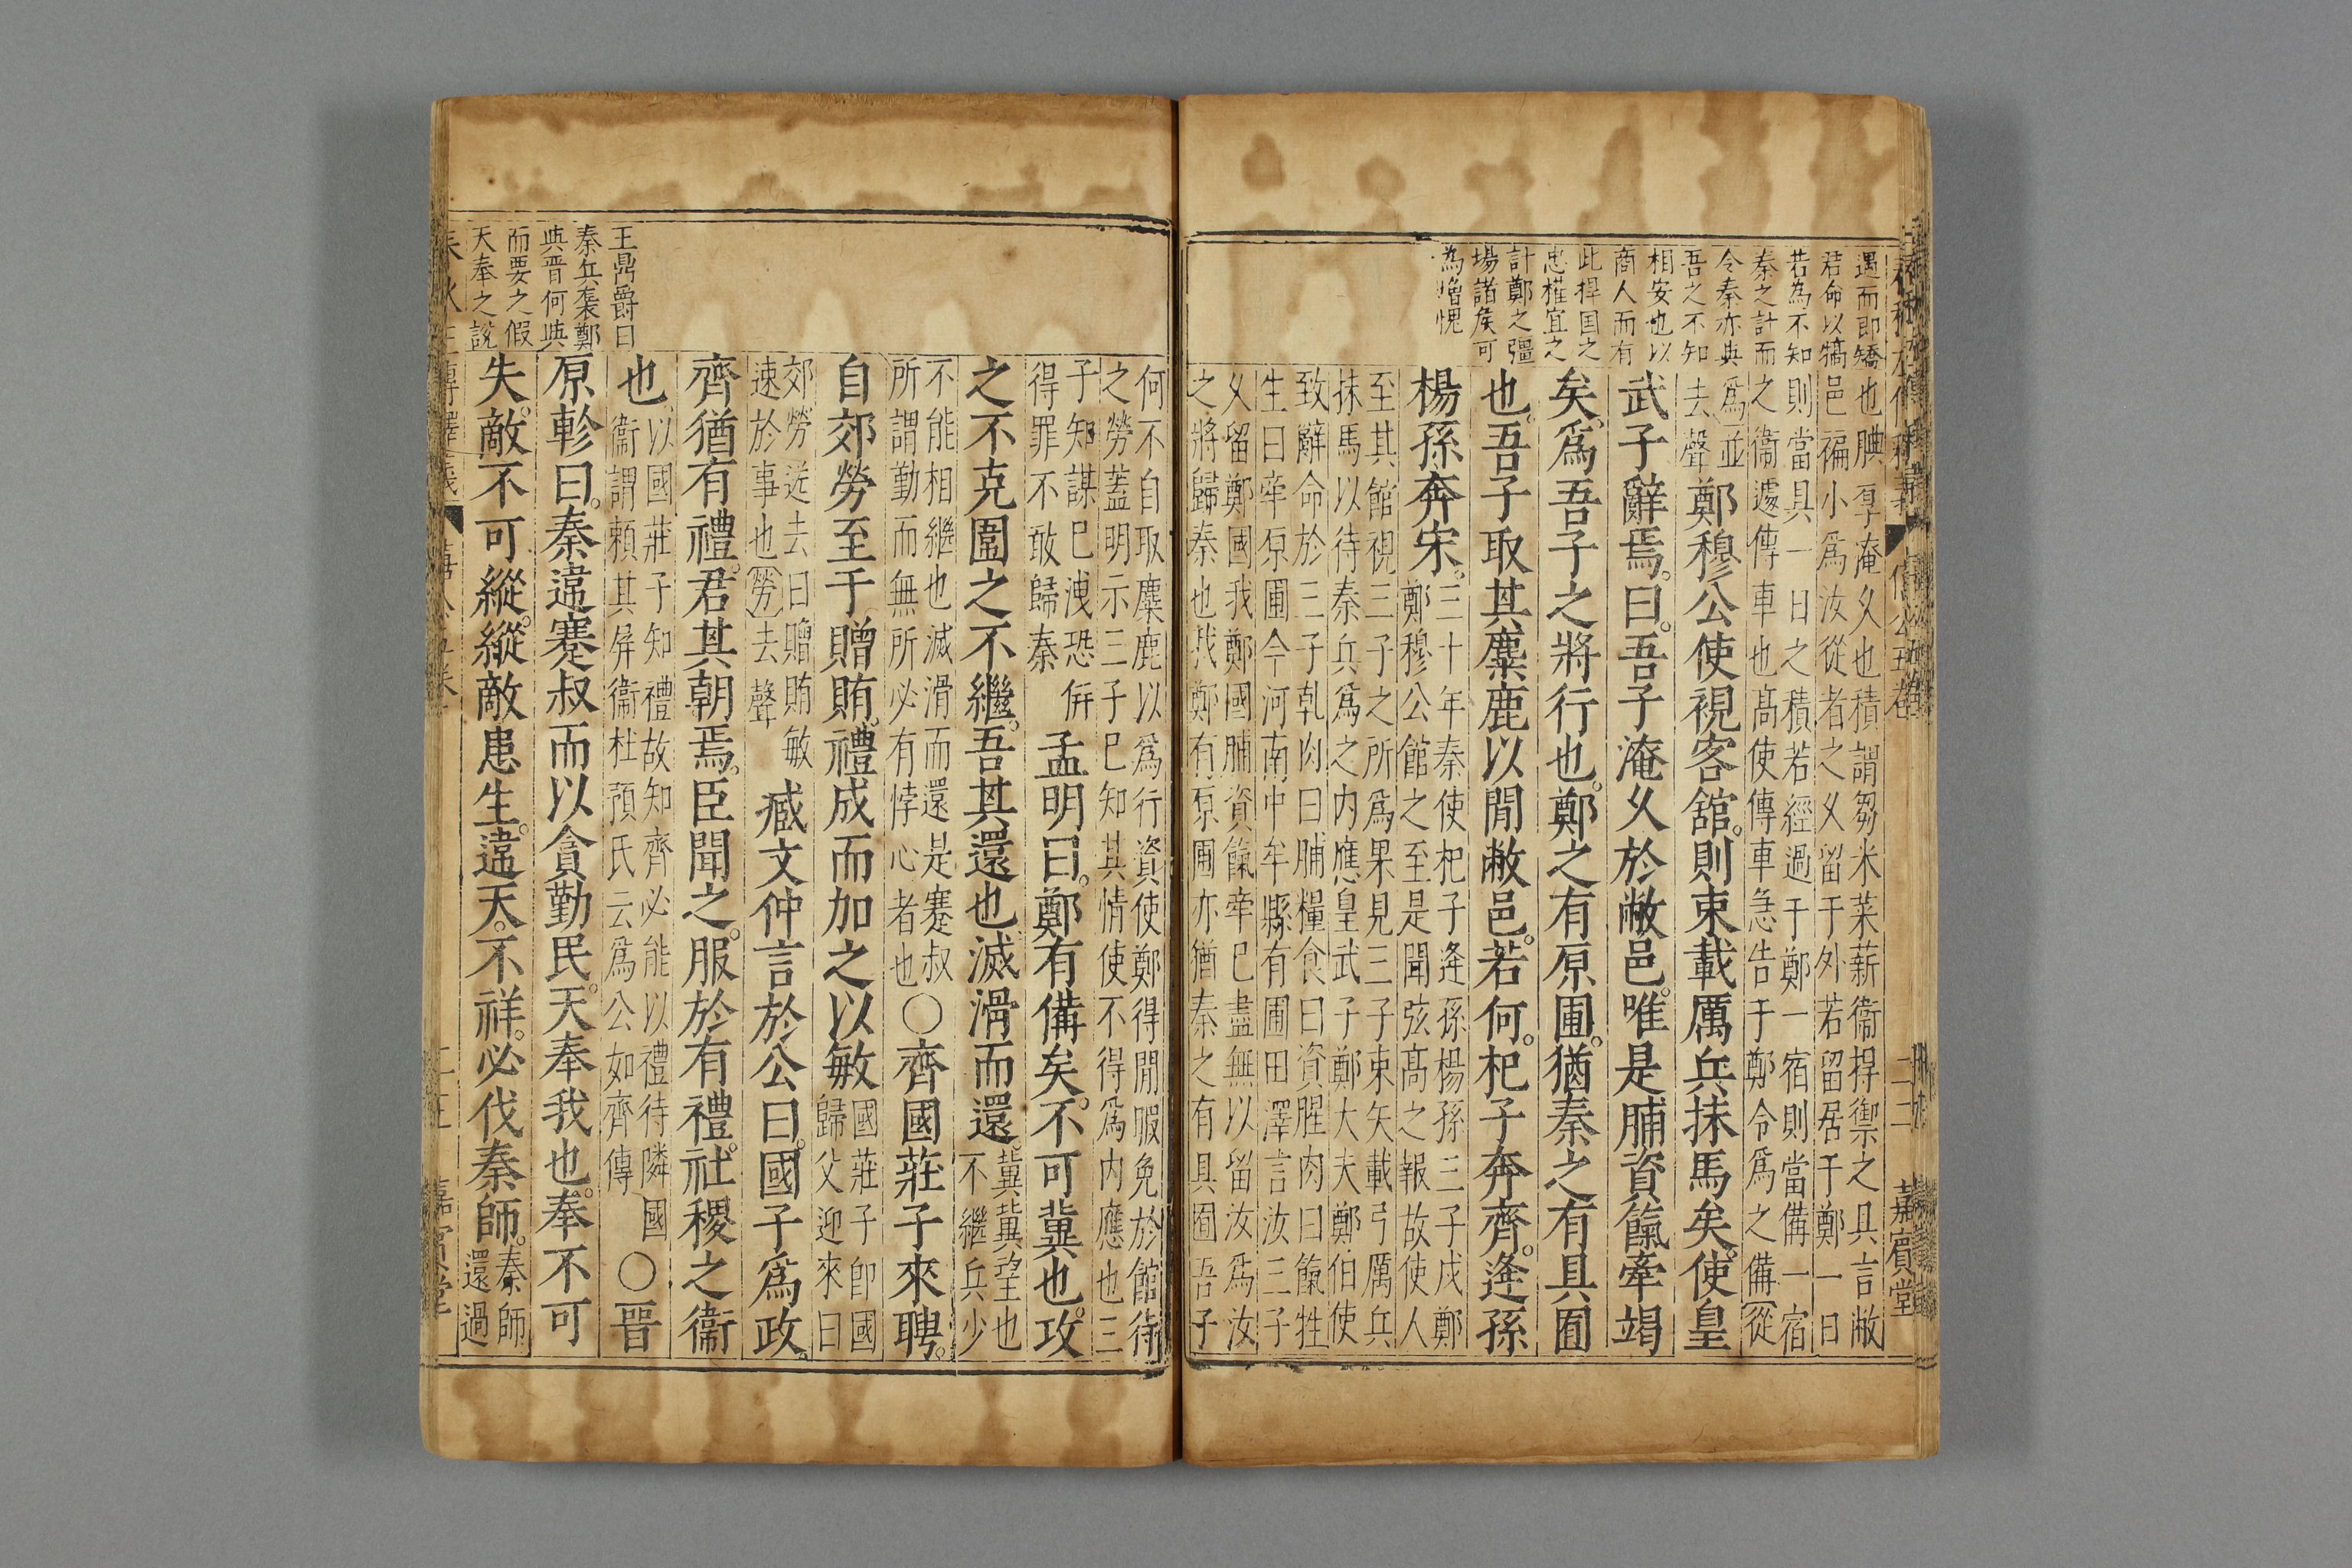 遇而即矯
君命以犒
若為不知
秦之計而
令秦亦與
吾之不知
相安也以
商人而有
此捍国之
忠權宜之
計鄭之彊
場諸侯可
為增愧
也腆厚淹久也積謂芻米菜薪衞捍禦之具言敝
邑褊小爲汝從者之久留于外若留居于鄭一日
則當具一日之積若經過于鄭一宿則當備一宿
之衞遽傳車也髙使傳車急告于鄭令爲之備從
爲並
去聲
鄭穆公使視客舘則束載厲兵抹馬矣使皇
武子辭焉曰吾子淹久於敝邑唯是脯資餼牽竭
矣爲吾子之將行也鄭之有原圃猶秦之有具囿
也吾子取其麋鹿以閒敝邑若何杞子奔齊逄孫
楊孫奔宋
三十年秦使杞子逄孫楊孫三子戍鄭
鄭穆公館之至是聞弦髙之報故使人
至其館視三子之所爲果見三子束矢載弓厲兵
抹馬以待秦兵爲之内應皇武子鄭大夫鄭伯使
致辭命於三子乹肉曰脯糧食曰資腥肉曰餼牲
生曰牽原圃今河南中牟縣有圃田澤言汝三子
久留鄭國我鄭國脯資餼牽已盡無以留汝爲汝
之將歸秦也我鄭有原圃亦猶秦之有具囿吾子
何不自取麋鹿以爲行資使鄭得閒暇免於館待
之勞葢明示三子已知其情使不得爲内應也三
子知謀已洩恐
得罪不敢歸秦
孟明曰鄭有備矣不可冀也攻
之不克圍之不繼吾其還也滅滑而還
冀冀望也
不繼兵少
不能相繼也滅滑而還是蹇叔
所謂勤而無所必有悖心者也
○齊國莊子來聘
自郊勞至于贈賄禮成而加之以敏
國莊子卽國
歸父迎來曰
郊勞送去曰贈賄敏
速於事也勞去聲
臧文仲言於公曰國子爲政
齊猶有禮君其朝焉臣聞之服於有禮社稷之衞
也
以國莊子知禮故知齊必能以禮待隣國
衞謂賴其屏衞杜預氏云爲公如齊傳
○晉
原軫曰秦違蹇叔而以貪勤民天奉我也奉不可
失敵不可縱縱敵患生違天不祥必伐秦師
秦師
還過
王鼎爵曰
秦兵襲鄭
與晋何與
而要之假
天奉之說
二二
嘉賓堂